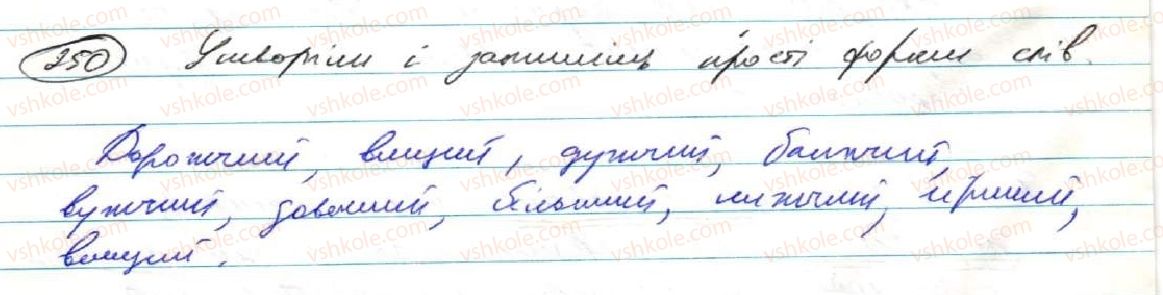 250 Утворіть і запишіть прості форми слів.
Дорожчий, вищий, дужчий, ближчий,
вужчий, довший, більший, нижчий, гірший,
вищий.